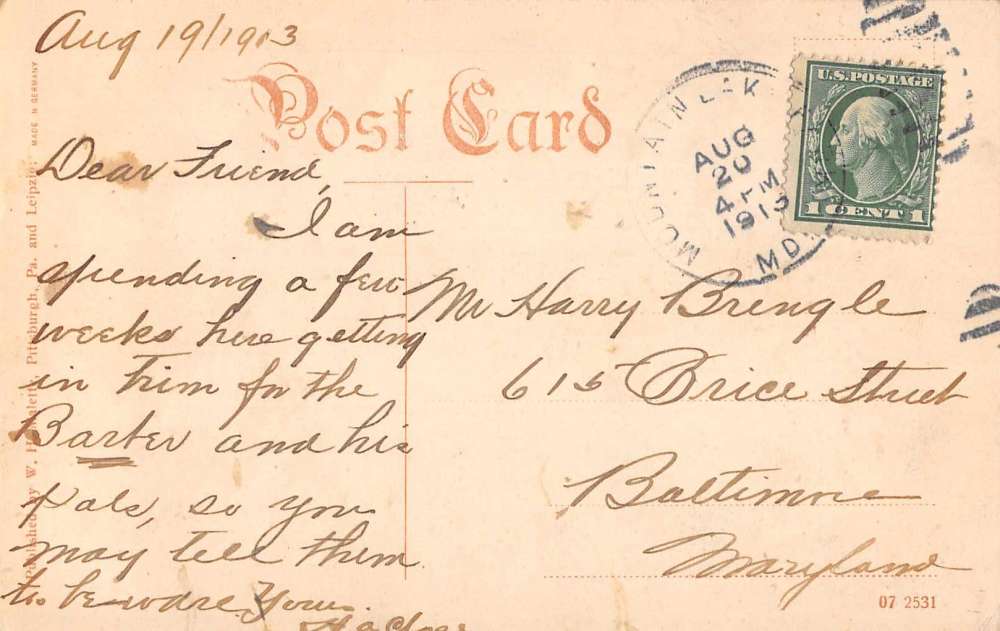 Aug 19/1913
Post Card
Dear Friend,
I am
spending a few
weeks here getting
in trim for the
Barter and his
pals, so you
may tell them
to be-ware. Yours.
MOUNTAIN LAK
AUG
20
4 PM
1913
MD
U.S. POSTAGE
1 CENT 1
Mr Harry Brengle
615 Brice Street
Baltimore
Maryland
07 2531
Published by W. Pittsburgh, Pa. and Leipzig. MADE IN GERMANY